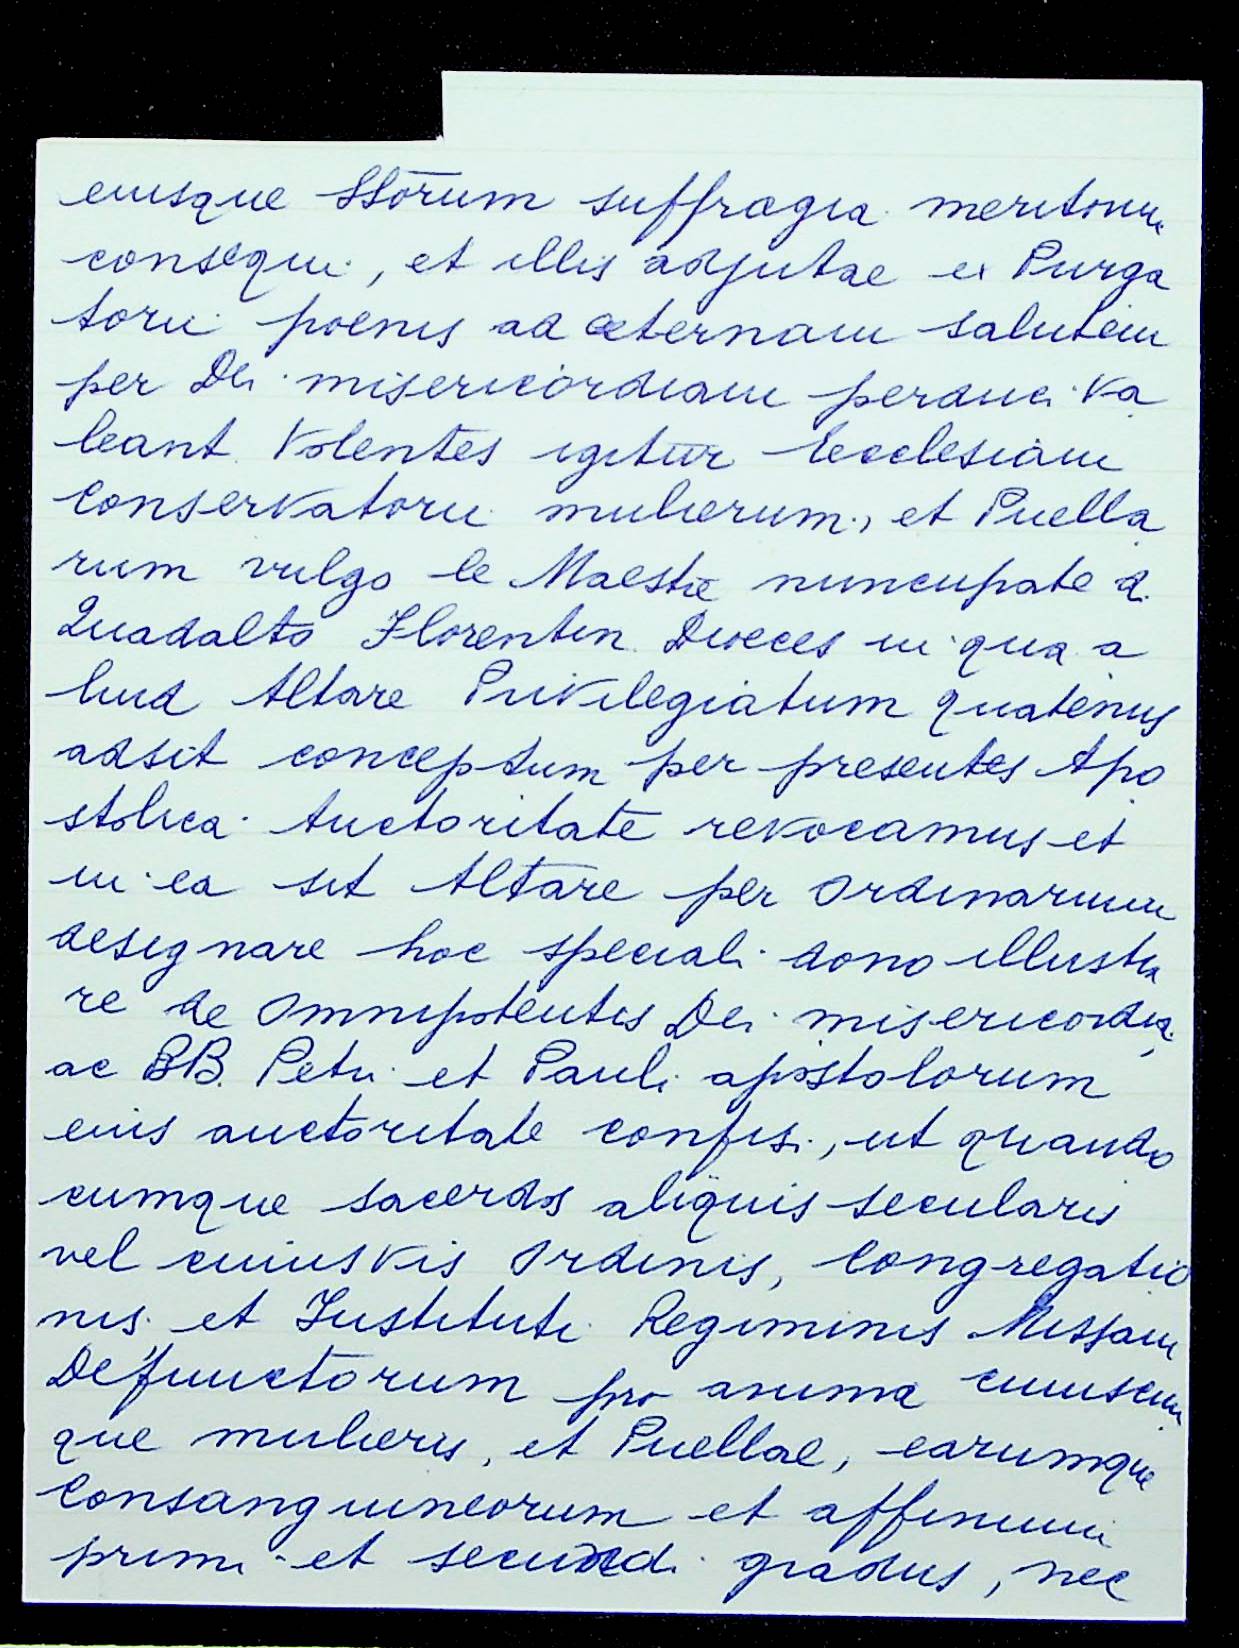 eiusque SStōrum suffragia meritorum
consequi, et illis adjutae ex Purga
torii poenis ad aeternam salutem
per Dei misericordiam perduci va
leant. Volentes igitur Ecclesiam
Conservatorii mulierum, et Puella
rum vulgo le Maestre nuncupate di
Quadalto Florentin. Dioeces in qua a
liud Altare Privilegiatum quatenus
adsit conceptum per presentes Apo
stolica Auctoritate revocamus et
in ea sit Altare per Ordinarium
designare hoc speciali dono illustra
re de Omnipotentis Dei misericordia,
ac BB. Petri et Pauli apostolorum
eius auctoritate confisi, ut quando
cumque sacerdos aliquis secularis
vel cuiusvis Ordinis, Congregatio
nis et Instituti Regiminis Missam
Defunctorum pro anima cuiuscum
que mulieris, et Puellae, earumque
Consanguineorum et affinium
primi et secundi gradus, nec